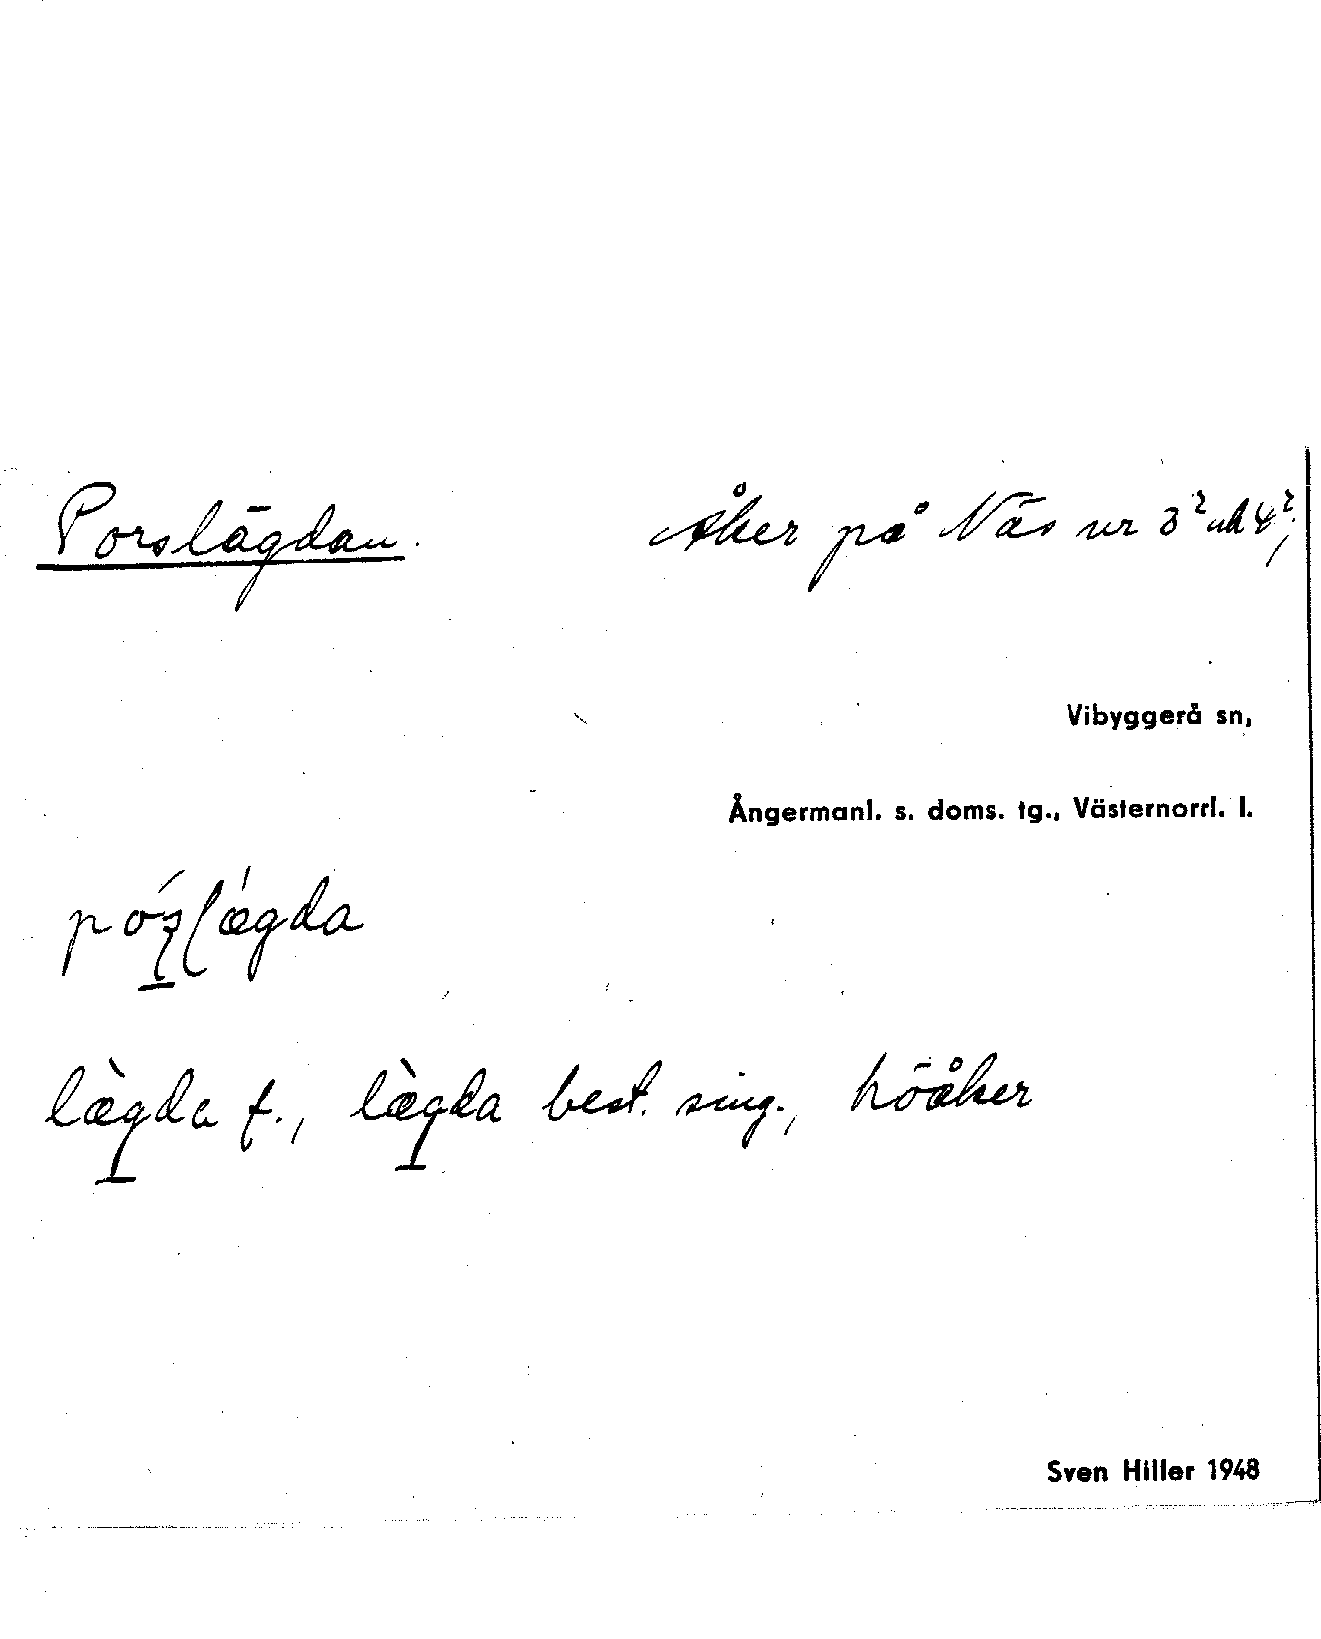 Porslägdan. Åker på Näs nr 3² och 4²;
Vibyggerå sn,
Ångermanl. s. doms. tg., Västernorrl. l.
lægda f., lægda best. sing., höåker
Sven Hiller 1948